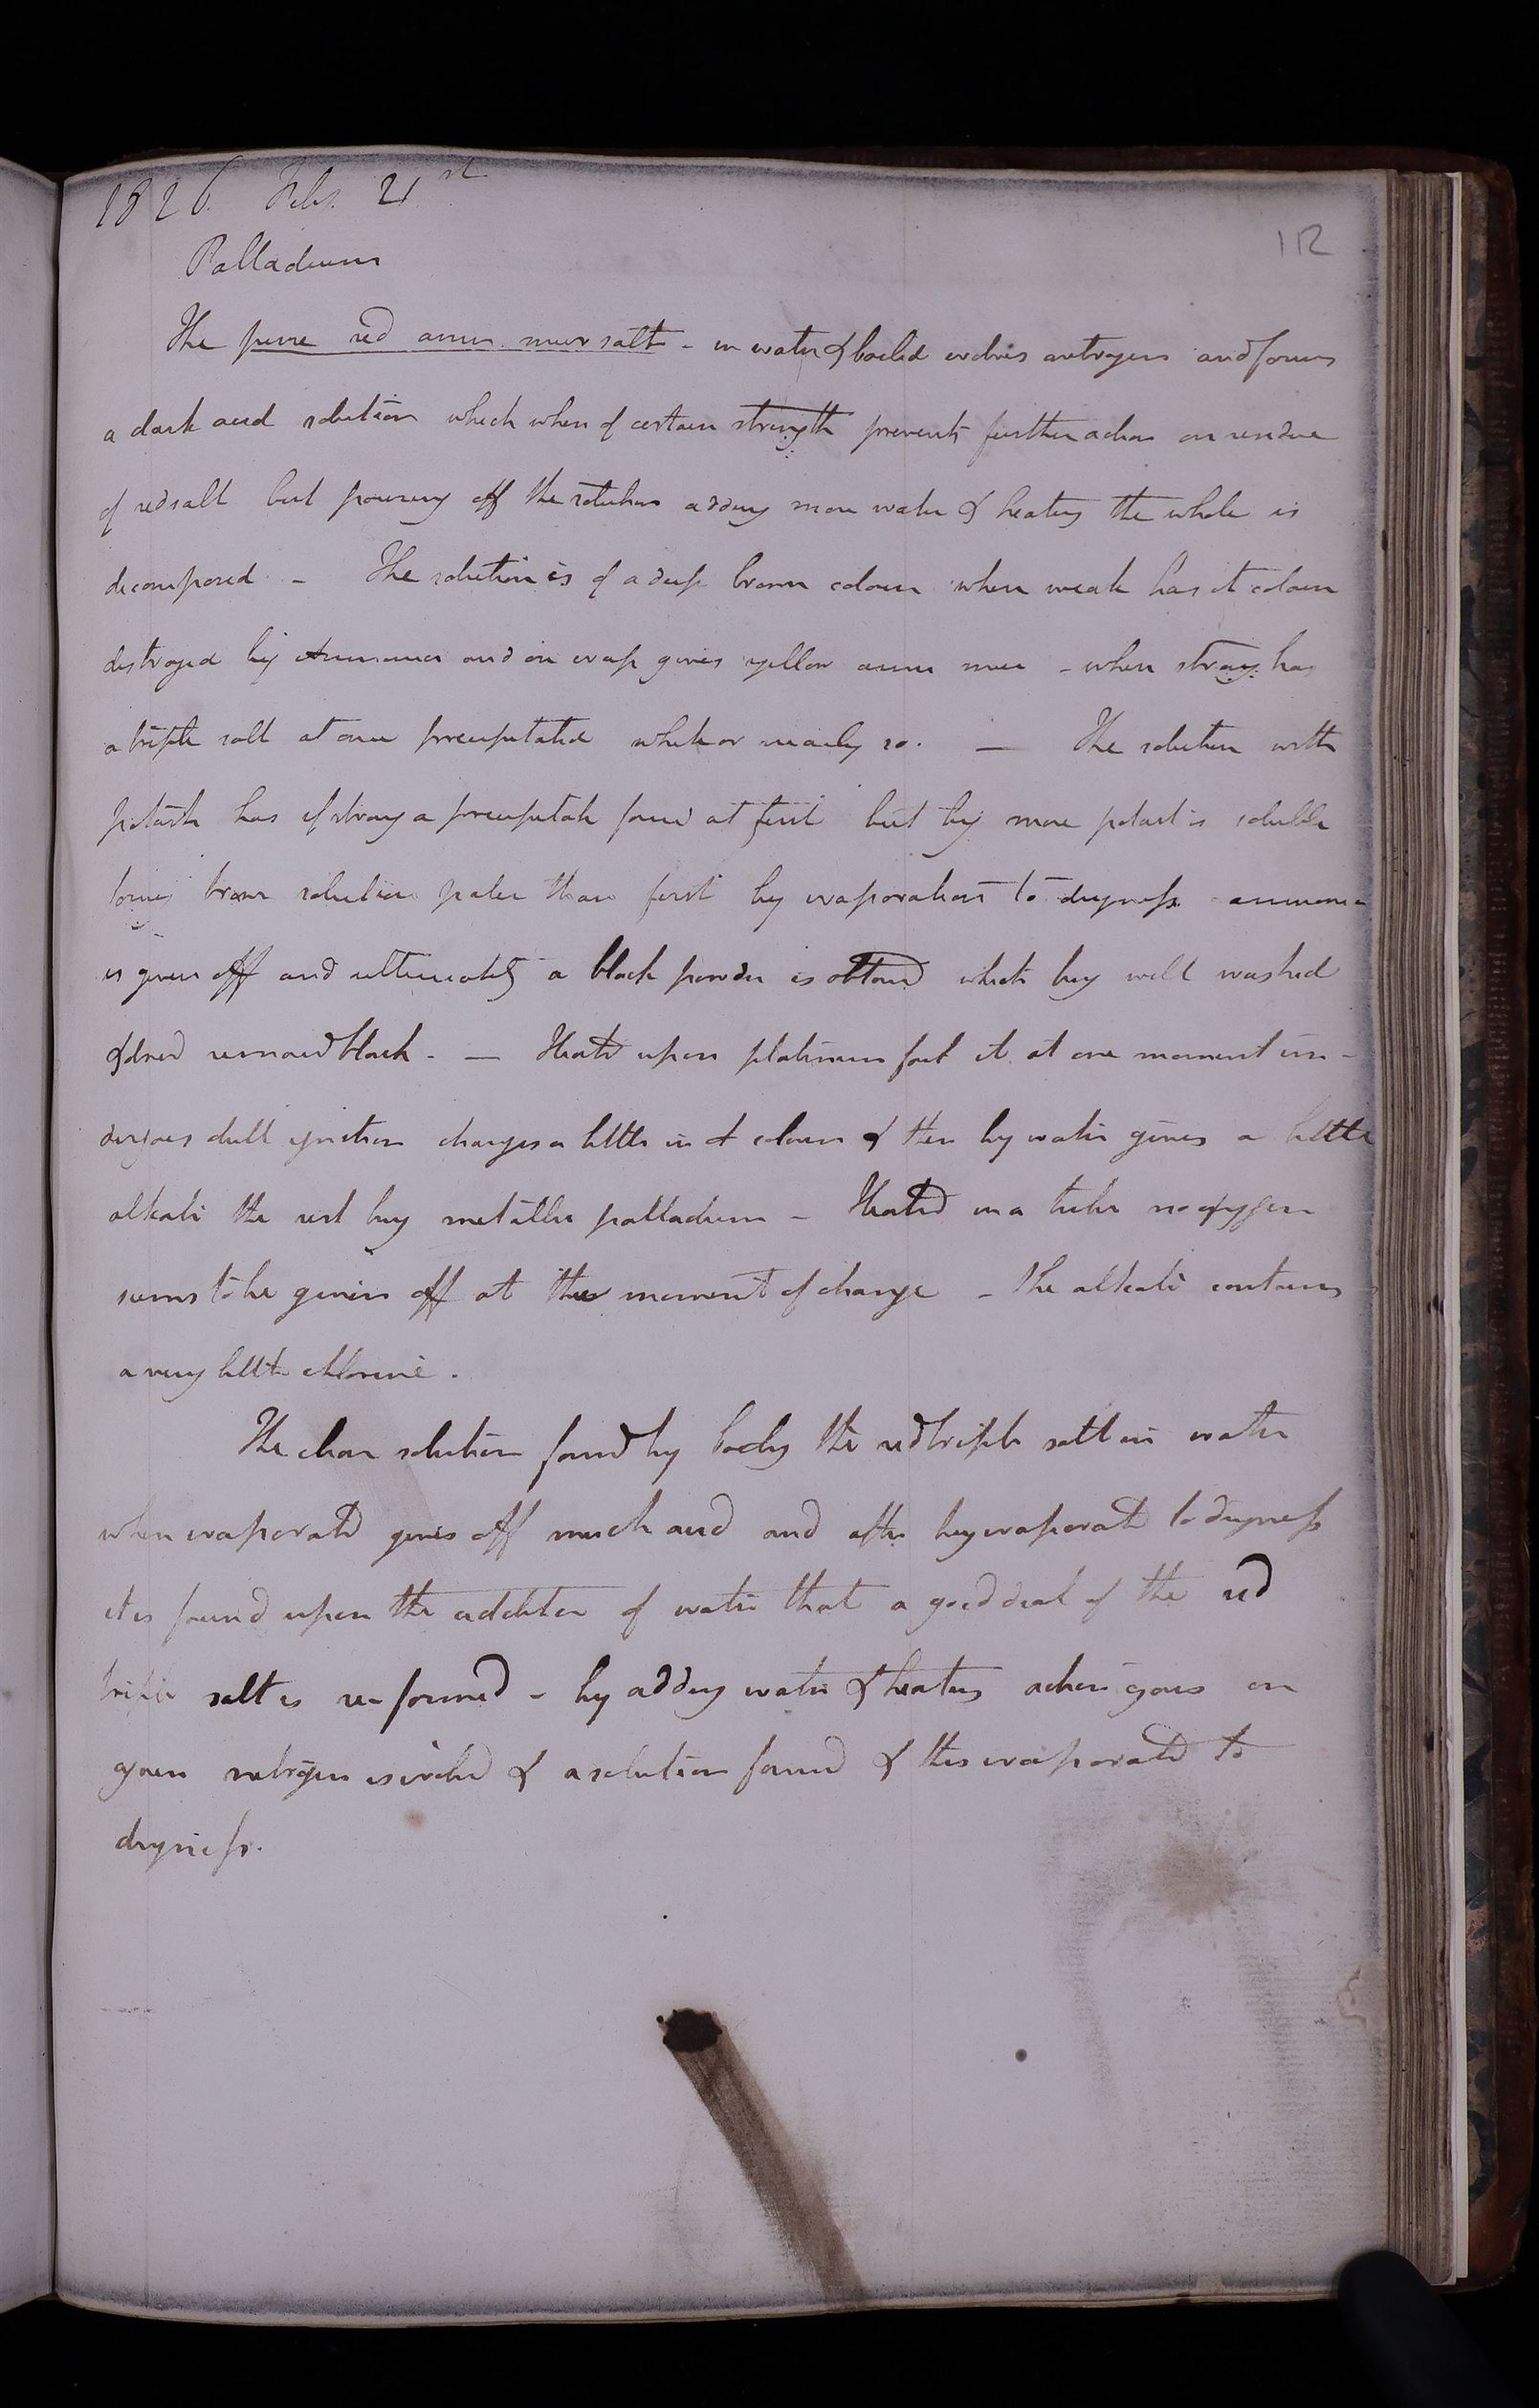 1826. Feby. 21st
112
Palladium
The pure red amm. mur salt - in water & boiled evolves nitrogen and forms
a dark acid solution which when of certain strength prevents further action on residue
of red salt but pouring off the solution adding more water & heating the whole is
decomposed - The solution is of a deep brown colour when weak has it colour
destroyed by Ammonia and on evap gives yellow amm mur - when strong has
a triple salt at once precipitated white or nearly so. — The solution with
potash has if strong a precipitate formd at first but by more potash is soluble
brown solution paler than first by evaporation to dryness ammonia
is given off and ultimately a black powder is obtaind which being well washed
& dried remaind black - — Heatd upon platinum foil it at one moment un-
dergoes dull ignition changes a little in it colour & then by water gives a little
alkali the rest being metallic palladium - Heatd in a tube no oxygen
seems to be given off at the moment of change - the alkali contains
a very little chlorine.
The clear solution formd by boiling the red triple salt in water
when evaporatd gives off much acid and after being evaporatd to dryness
it is found upon the addition of water that a good deal of the red
triple salt is re-formed - by adding water & heating action goes on
again nitrogen is evolvd & a solution formd & this evaporatd to
dryness.